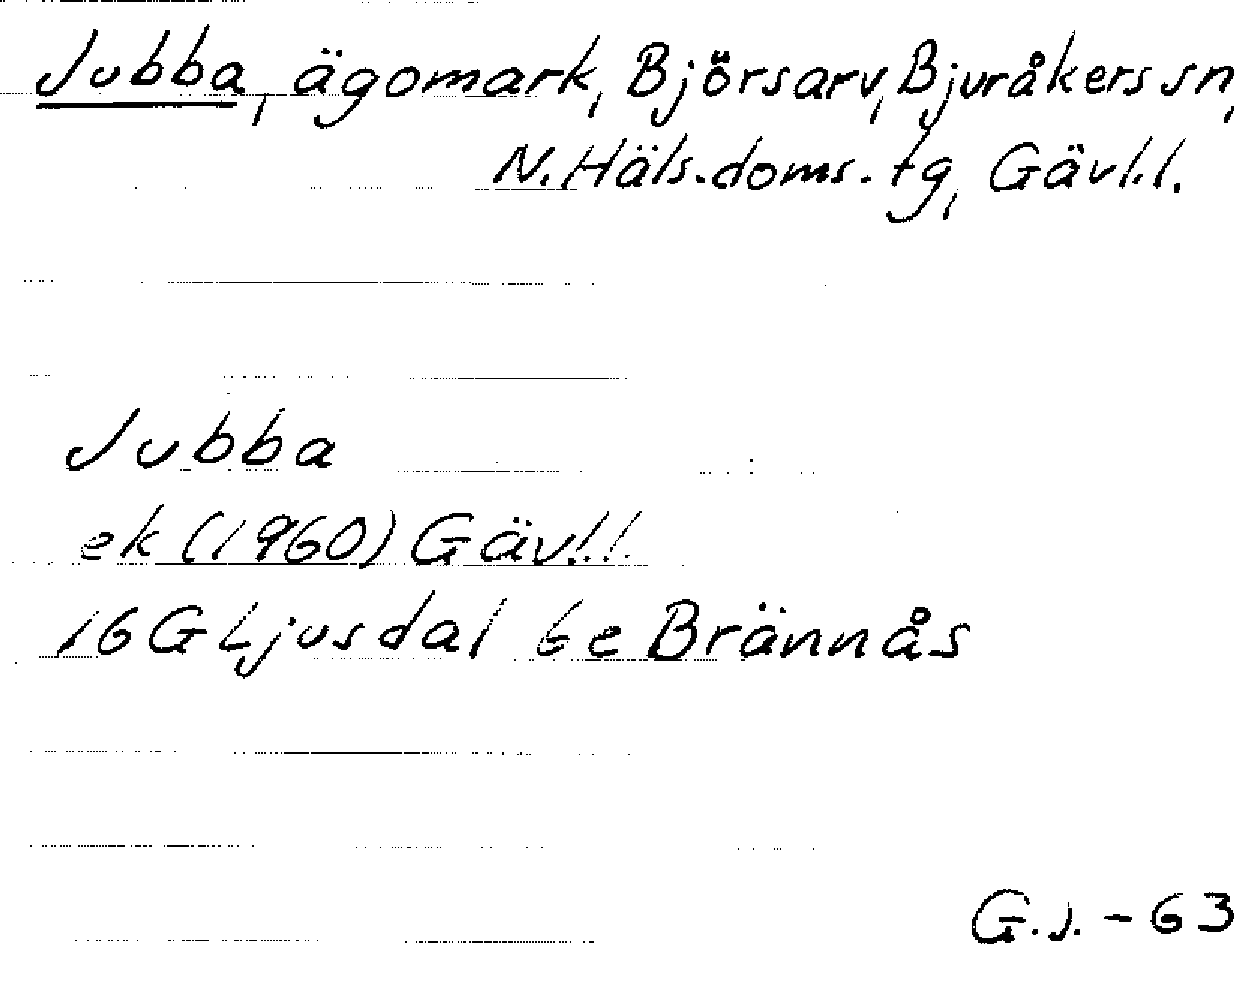 Jubba, ägomark, Björsarv, Bjuråkers sn,
N. Häls. doms. tg, Gävl.l.
Jubba
ek (1960) Gävl.l.
16G Ljusdal 6e Brännås
G.J. - 63